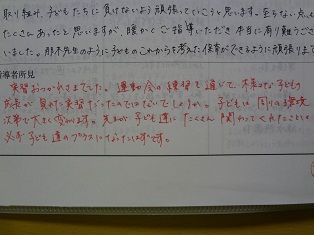 取り組み、子どもたちに負けないよう頑張っていこうと思います。至らない点も
たくさんあったと思いますが、暖かくご指導いただき本当に有り難うござ
いました。那木先生のように子どものこれからを考えた保育ができるように頑張りま
指導者所見
実習おつかれさまでした。運動会の練習を通じて、様々な子どもの
成長が見れた実習だったのではないでしょうか。子どもは周りの環境
次第で大きく変わります。先生が子ども達にたくさん関わってくれたことは
必ず子ども達のプラスになったはずです。